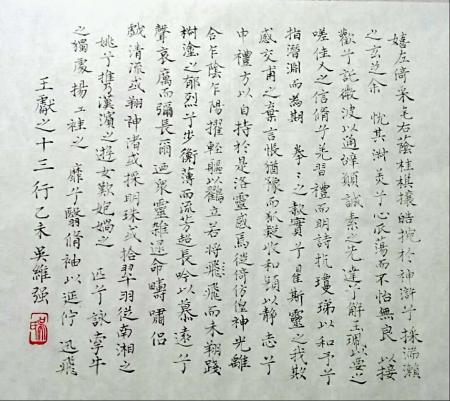 嬉左倚采毛右陰桂棋攘皓捥於神滸兮採湍瀨
之玄芝余 悅其淑美兮心振蕩而不怡無良 以接
歡兮託微波以通辭願誠素之先達兮解玉珮以要之
嗟佳人之信脩兮羌習禮而明詩抗瓊珶以和予兮
指潛淵而為期 拳〻之款實兮懼斯靈之我欺
感交甫之棄言悵猶豫而狐疑收和顏以靜志兮
申禮方以自持於是洛靈感焉徙倚仿偟神光離
合乍陰乍陽擢輕軀以鶴立若將飛而未翔踐
椒塗之郁烈兮步衡薄而流芳超長吟以慕遠兮
聲哀厲而彌長爾迺衆靈雜遝命疇嘯侶
戲清流或翔神渚或採明珠或拾翠羽從南湘之
姚兮携漢濱之遊女歎妑媧之 匹兮詠牽牛
之獨處揚 袿之 靡兮翳脩袖以延佇 迅飛
王獻之十三行乙未吳維强